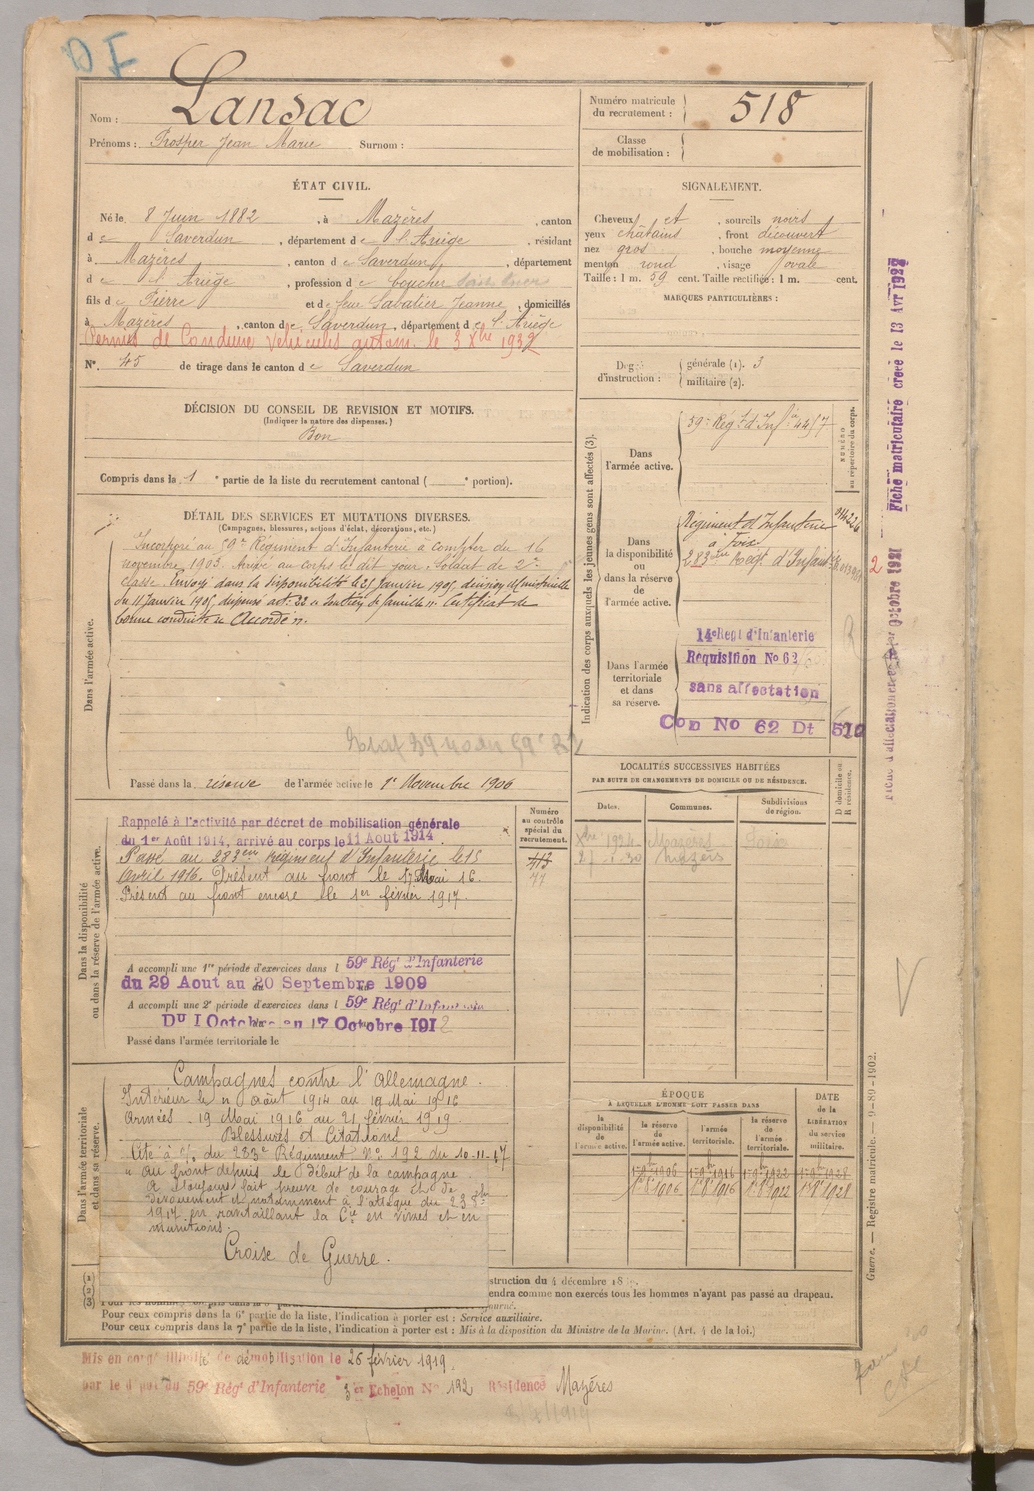 Nom : Lansac
Prénoms : Prosper Jean Marie Surnom :
Numéro matricule du recrutement : 518
Classe de mobilisation :
ÉTAT CIVIL.
Né le 8 Juin 1882, à Mazères, canton
de Saverdun, département de l'Ariège, résidant
à Mazères, canton de Saverdun, département
de l'Ariège, profession de boucher
fils de Pierre et de feue Sabatier Jeanne, domiciliés
à Mazères, canton de Saverdun, département de l'Ariège
Permis de Conduire Vehicules autom. le 3 Xbre 1932
N° 45 de tirage dans le canton de Saverdun
SIGNALEMENT.
Cheveux et, sourcils noirs
yeux châtains, front découvert
nez gros, bouche moyenne
menton rond, visage ovale
Taille : 1 m. 59 cent. Taille rectifiée : 1 m. cent.
MARQUES PARTICULIÈRES :
Degré d'instruction : générale (1). 3
militaire (2).
DÉCISION DU CONSEIL DE REVISION ET MOTIFS.
(Indiquer la nature des dispenses.)
Bon
Compris dans la 1e partie de la liste du recrutement cantonal ( e portion).
DÉTAIL DES SERVICES ET MUTATIONS DIVERSES.
(Campagnes, blessures, actions d'éclat, décorations, etc.)
Dans l'armée active.
Incorporé au 59e Régiment d'Infanterie à compter du 16
novembre 1903. Arrivé au corps le dit jour. Soldat de 2e
classe. Envoyé dans la disponibilité le 21 Janvier 1905, décision Ministérielle
du 11 Janvier 1905, dispensé art: 22 "Soutien de famille". Certificat de
bonne conduite "Accordé".
Passé dans la réserve de l'armée active le 1er Novembre 1906
Indication des corps auxquels les jeunes gens sont affectés (3).
NUMÉRO au répertoire du corps.
Dans l'armée active.
59e Régt d'Infie 4457
Dans la disponibilité ou dans la réserve de l'armée active.
Régiment d'Infanterie
à Foix
283e Régt d'Infanterie
Dans l'armée territoriale et dans sa réserve.
14e Regt d'Infanterie
Requisition No 62
sans affectation
Con No 62 Dt 510
Fiche matriculaire créée le 13 Avr 1928
Octobre 1921
Dans la disponibilité ou dans la réserve de l'armée active.
Numéro au contrôle spécial du recrutement.
413
77
Rappelé à l'activité par décret de mobilisation générale
du 1er Août 1914, arrivé au corps le 11 Aout 1914
Passé au 283ème Régiment d'Infanterie le 15
Avril 1916. Présent au front le 17 Mai 16.
Présent au front encore le 1er février 1917.
A accompli une 1re période d'exercices dans l 59e Régt d'Infanterie
du 29 Aout au 20 Septembre 1909
A accompli une 2e période d'exercices dans l 59e Régt d'Infanterie
Du 1 Octobre au 17 Octobre 1912
Passé dans l'armée territoriale le
LOCALITÉS SUCCESSIVES HABITÉES
PAR SUITE DE CHANGEMENTS DE DOMICILE OU DE RÉSIDENCE.
Dates. Communes. Subdivisions de région. D domicile ou R résidence.
Mazères
Mazères
Dans l'armée territoriale et dans sa réserve.
Campagnes contre l'Allemagne.
Intérieur le 11 Août 1914 au 18 Mai 1916
Armées 19 Mai 1916 au 21 février 1919
Blessures et Citations
Cité à l'o. du 283e Régiment No 192 du 10-11-17
" au front depuis le début de la campagne
a toujours fait preuve de courage et de
dévouement et notamment à l'attaque du 23 8bre
1917 en ravitaillant la Cie en vivres et en
munitions.
Croix de Guerre.
ÉPOQUE
À LAQUELLE L'HOMME DOIT PASSER DANS
la disponibilité de l'armée active. la réserve de l'armée active. l'armée territoriale. la réserve de l'armée territoriale. DATE de la LIBÉRATION du service militaire.
1er 9bre 1906 1er 9bre 1916 1er 9bre 1922 1er 9bre 1928
1er 8bre 1906 1er 8bre 1916 1er 8bre 1922 1er 8bre 1928
(1)
(2)
(3)
struction du 4 décembre
endra comme non exercés tous les hommes n'ayant pas passé au drapeau.
Pour ceux compris dans la 6e partie de la liste, l'indication à porter est : Service auxiliaire.
Pour ceux compris dans la 7e partie de la liste, l'indication à porter est : Mis à la disposition du Ministre de la Marine. (Art. 4 de la loi.)
Guerre. — Registre matricule. — 9-89-1902.
Mis en congé illimité de démobilisation le 26 février 1919.
par le dépôt du 59e Régt d'Infanterie 3e Echelon No 192 Résidence Mazères